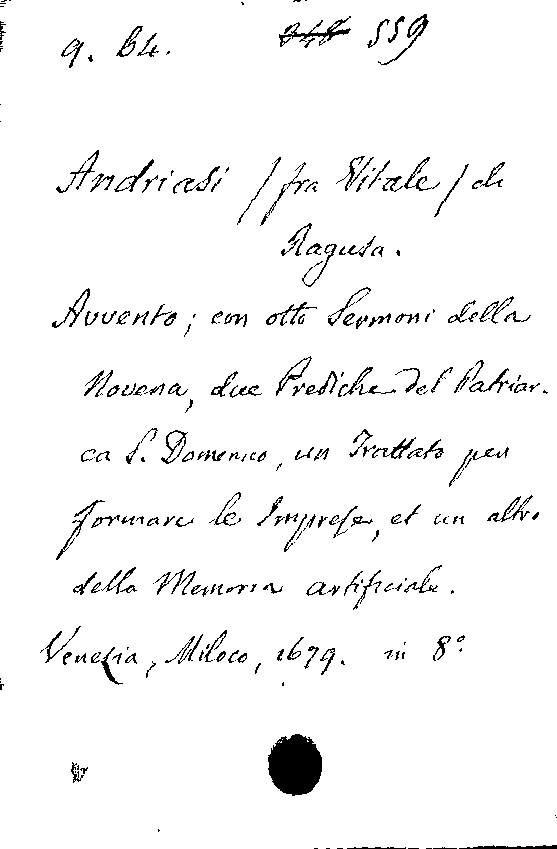 9. b4. 559
Andriasi / fra Vitale / da
Ragusa.
Avvento; con otto Sermoni della
Novena, due Prediche del Patriar-
ca S. Domenico, un Trattato per
formare le Imprese, et un altro
della Memoria artificiale.
Venezia, Miloco, 1679. in 8º